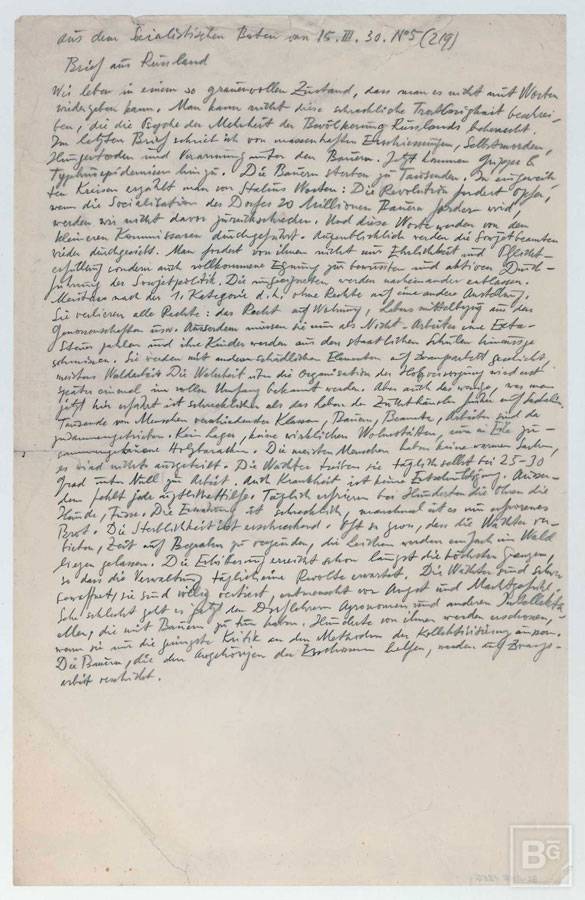 aus dem Socialistischen Boten von 15. III. 30. No 5 (219)
Brief aus Russland
Wir leben in einem so grauenvollen Zustand, dass man es nicht mit Worten
wiedergeben kann. Man kann nicht diese schreckliche Trostlosigkeit beschrei-
ben, die die Psyche der Mehrheit der Bevölkerung Russlands beherrscht.
Im letzten Brief schrieb ich von massenhaften Erschiessungen, Selbstmorden,
Hungertoden und Verarmung unter den Bauern. Jetzt kommen Grippe &
Typhusepidemien hinzu. Die Bauern sterben zu Tausenden. In
ten Kreisen erzählt man von Stalins Worten: Die Revolution fordert Opfer,
wenn die Socialisation des Dorfes 20 Millionen Bauern fordern wird,
werden wir nicht davor zurückschrecken. Und diese Worte werden von den
kleineren Kommissaren durchgeführt. Augenblicklich werden die Sowjetbeamten
wieder durchgesiebt. Man fordert von ihnen nicht nur Ehrlichkeit und Pflicht-
erfüllung sondern auch vollkommene Eignung zu bewussten und aktiven Durch-
führung der Sowjetpolitik. Die werden nacheinander entlassen.
Meistens nach der 1. Kategorie d. h. ohne Rechte auf eine andere Anstellung,
Sie verlieren alle Rechte: das Recht auf Wohnung, Lebensmittelbezug aus den
Genossenschaften usw. Ausserdem müssen sie nun als Nicht-Arbeiter eine Extra-
Steuer zahlen und ihre Kinder werden aus den staatlichen Schulen hinausge-
schmissen. Sie werden mit anderen schädlichen Elementen auf Zwangsarbeit geschickt,
meistens Waldarbeit. Die Wahrheit über die Organisation der Holzversorgung wird erst
später einmal im vollen Umfang bekannt werden. Aber auch das wenige, was man
jetzt hier erfährt ist schrecklicher als das Leben der Zuchthäusler früher auf Sachalin.
Tausende von Menschen verschiedenster Klassen, Bauern, Beamte, Arbeiter sind da
zusammengetrieben. Kein Lager, keine wirklichen Wohnstätten, nur in Eile zu-
Holzbaracken. Die meisten Menschen haben keine warmen Sachen,
es wird nichts ausgeteilt. Die Wächter treiben sie täglich selbst bei 25-30
Grad unter Null zu Arbeit. Auch Krankheit ist keine Entschuldigung. Ausser-
dem fehlt jede ärztliche Hilfe. Täglich erfrieren bei Hunderten die Ohren die
Hände, Füsse. Die Ernährung ist schrecklich, manchmal ist es nur erfrorenes
Brot. Die Sterblichkeit ist erschreckend. Oft so gross, dass die Wächter ver-
bieten, Zeit auf Begraben zu vergeuden, die Leichen werden einfach im Wald
liegen gelassen. Die Erbitterung erreicht schon längst die höchsten Grenzen,
so dass die Verwaltung täglich eine Revolte erwartet. Die Wächter sind schwer
bewaffnet, sie sind völlig vertiert, entmenscht von Angst und Machtgefühl.
Sehr schlecht geht es jetzt den Dorflehrern Agronomen und anderen Intellektu-
ellen, die mit Bauern zu tun haben. Hunderte von ihnen werden erschossen,
wenn sie nur die geringste Kritik an den Methoden der Kollektivisierung
Die Bauern, die den Angehörigen der Erschossenen helfen, werden auf Zwangs-
arbeit verschickt.
BG